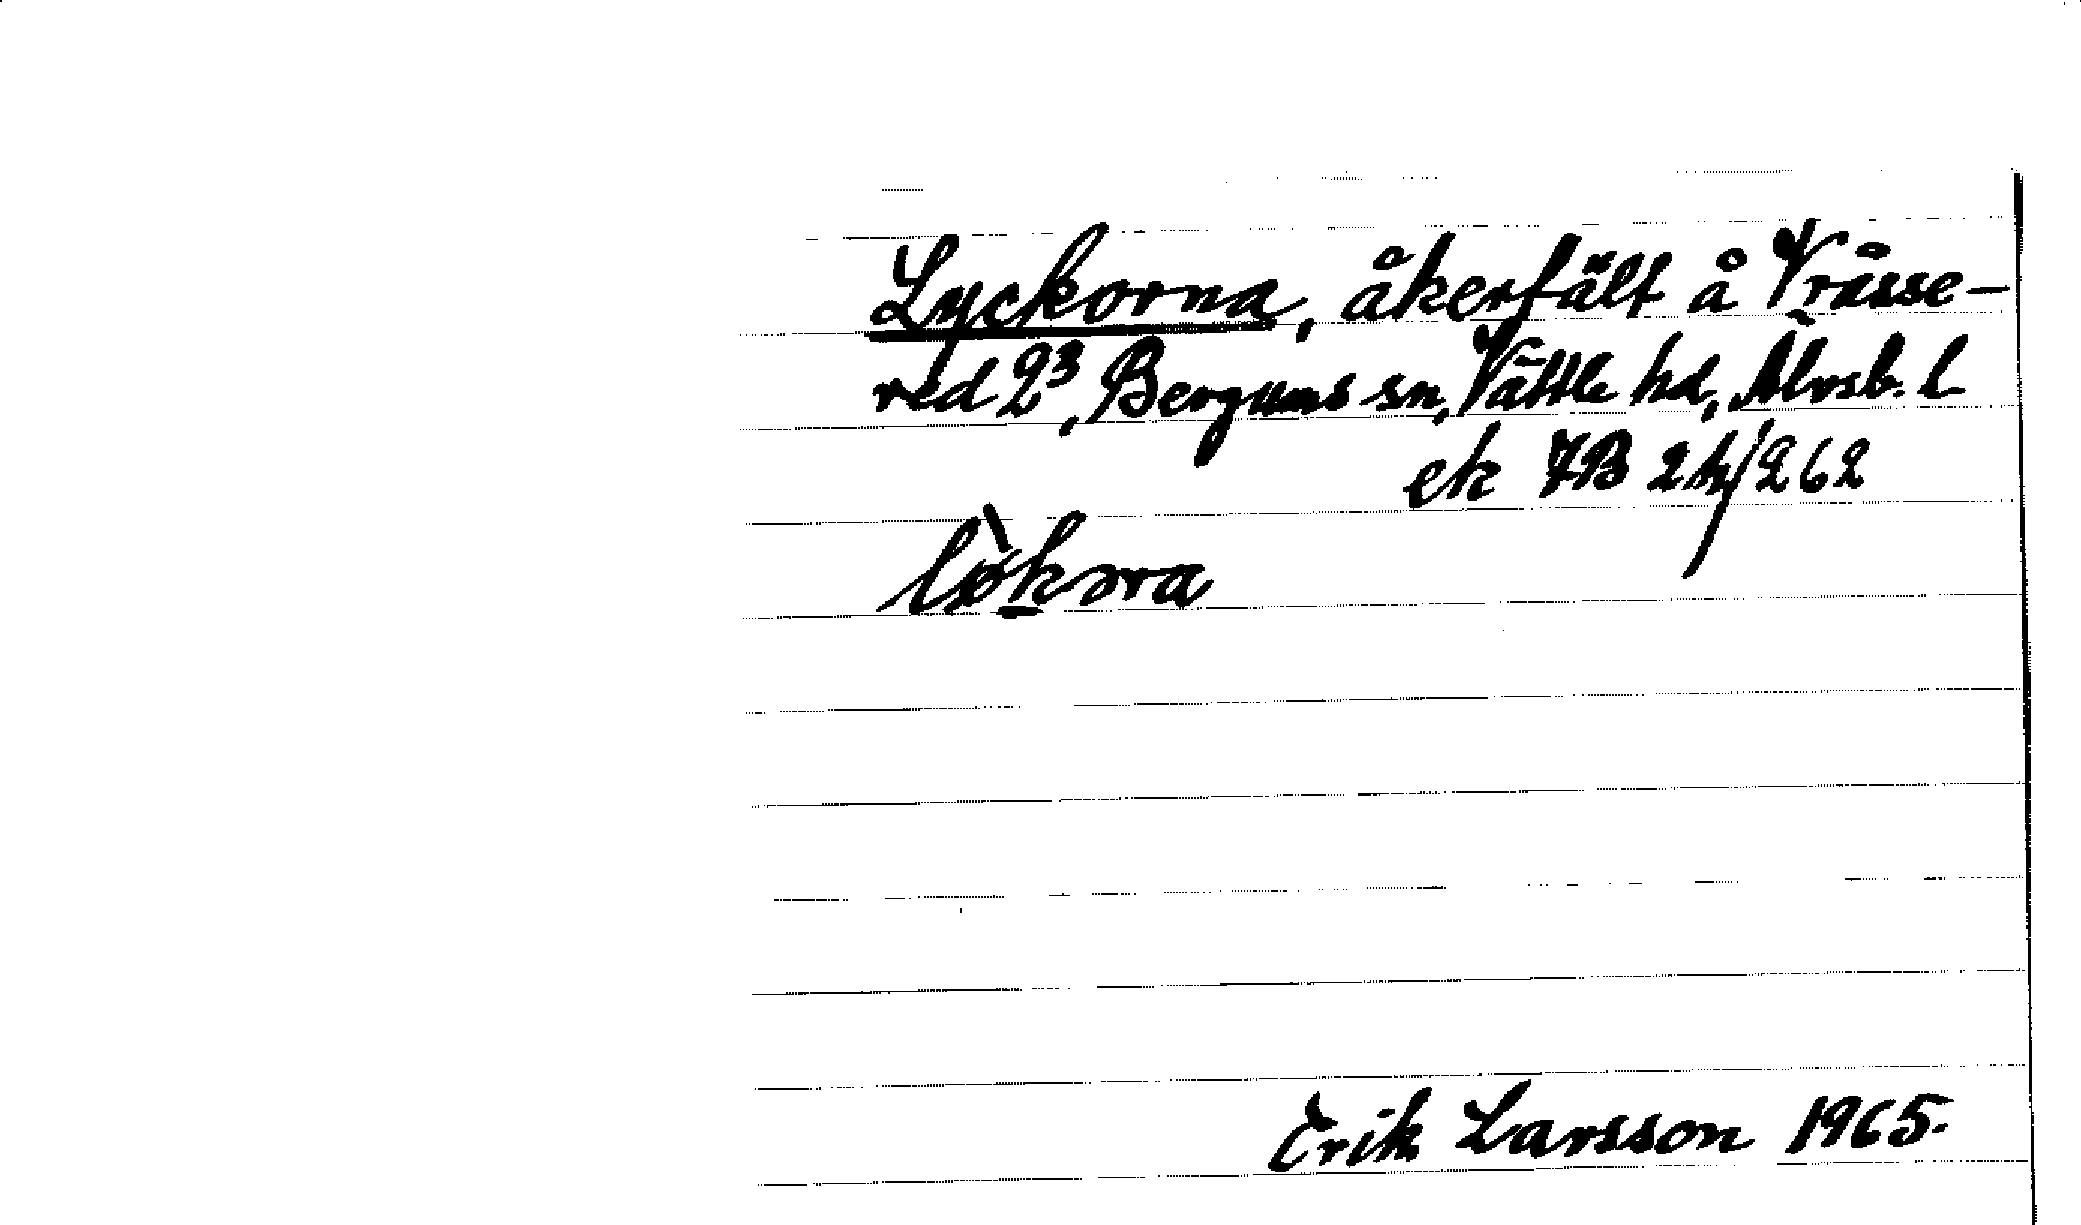 Lyckorna, åkerfält å Vråsse-
red 2³, Bergums sn, Vättle hd, Älvsb. l
ek 7B 2h/262
løkəra
Erik Larsson 1965.